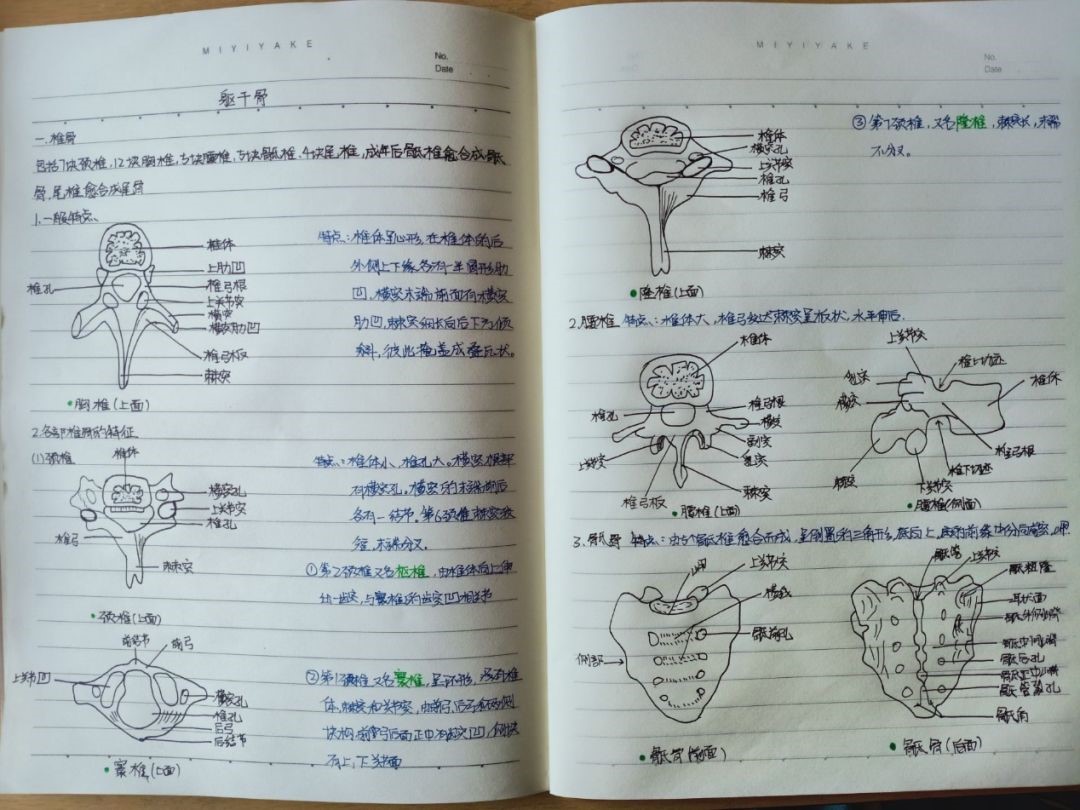 MIYIYAKE
No.
Date
躯干骨
一.椎骨
包括7块颈椎,12块胸椎,5块腰椎,5块骶椎.4块尾椎,成年后骶椎愈合成骶
骨,尾椎愈合成尾骨
1.一般特点、
椎体
上肋凹
椎孔
椎弓根
上关节突
横突
横突肋凹
椎弓板
棘突
•胸椎(上面)
特点:椎体呈心形,在椎体的后
外侧上下缘各有一半圆形肋
凹,横突末端前面有横突
肋凹,棘突细长向后下方倾
斜,彼此掩盖成叠瓦状。
2.各部椎骨的特征
(1)颈椎
椎体
横突孔
上关节突
椎孔
椎弓
棘突
•颈椎(上面)
特点:椎体小,椎孔大。横突根部
有横突孔。横突的末端前后
各有一结节。第6颈椎棘突较
短,末端分叉。
①第2颈椎又名枢椎,由椎体向上伸
出一齿突,与寰椎的齿突凹相关节
前结节
前弓
上关节凹
横突孔
椎孔
后弓
后结节
•寰椎(上面)
②第1颈椎又名寰椎,呈环形,没有椎
体,棘突和关节突,由前弓,后弓和两侧
块构.前弓后面正中有齿突凹,侧块
有上,下关节面
MIYIYAKE
No.
Date
椎体
横突孔
上关节突
椎孔
椎弓
棘突
•隆椎(上面)
③第7颈椎,又名隆椎,棘突长,末端
不分叉。
2.腰椎 特点:椎体大,椎弓发达棘突呈板状,水平伸后.
椎体
椎孔
椎弓根
横突
副突
上关节突
乳突
棘突
椎弓板
•腰椎(上面)
上关节突
椎上切迹
乳突
椎体
横突
椎弓根
棘突
椎下切迹
下关节突
•腰椎(侧面)
3.骶骨 特点:由5个骶椎愈合而成,呈倒置的三角形,底向上,
岬
上关节突
横线
骶前孔
侧部
•骶骨(前面)
骶管
上关节突
骶粗隆
耳状面
骶外侧嵴
骶中间嵴
骶后孔
骶正中嵴
骶管裂孔
骶角
•骶骨(后面)